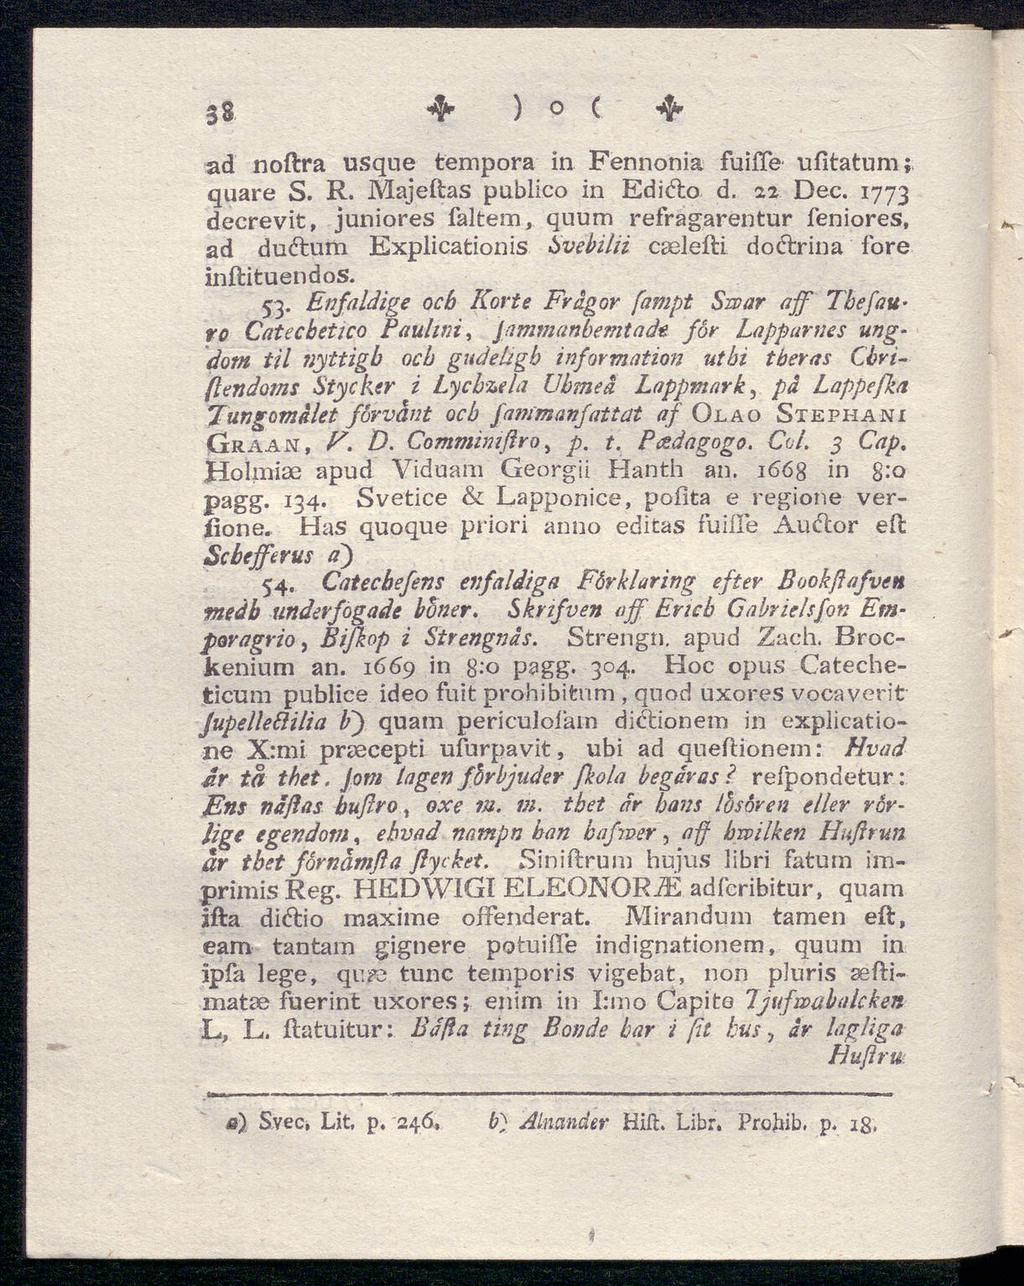 38 ) o (
ad noſtra usque tempora in Fennonia fuiſſe uſitatum;
quare S. R. Majeſtas publico in Edicto d. 22 Dec. 1773
decrevit, juniores ſaltem, quum refragarentur ſeniores,
ad ductum Explicationis Svebilii cæleſti doctrina fore
inſtituendos.
53. Enfaldige och Korte Frågor ſampt Swar aff Theſau-
ro Catechetico Paulini, ſammanhemtade för Lapparnes ung-
dom til nyttigh och gudeligh information uthi theras Chri-
ſtendoms Stycker i Lychzela Uhmeå Lappmark, på Lappeſka
Tungomålet förvänt och ſammanſattat af OLAO STEPHANI
GRAAN, V. D. Comminiſtro, p. t. Pædagogo. Col. 3 Cap.
Holmiæ apud Viduam Georgii Hanth an. 1668 in 8:o
pagg. 134. Svetice & Lapponice, poſita e regione ver-
ſione. Has quoque priori anno editas fuiſſe Auctor eſt
Schefferus a)
54. Catecheſens enfaldiga Förklaring efter Bookſtafven
medh underfogade böner. Skrifven aff Erich Gabrielsſon Em-
poragrio, Biſkop i Strengnäs. Strengn. apud Zach. Broc-
kenium an. 1669 in 8:o pagg. 304. Hoc opus Cateche-
ticum publice ideo fuit prohibitum, quod uxores vocaverit
ſupellectilia b) quam periculoſam dictionem in explicatio-
ne X:mi præcepti uſurpavit, ubi ad queſtionem: Hvad
är tå thet, ſom lagen förbjuder ſkola begäras? reſpondetur:
Ens näſtas huſtro, oxe m. m. thet är hans löſören eller rör-
lige egendom, ehvad nampn han hafwer, aff hwilken Huſtrun
är thet förnämſta ſtycket. Siniſtrum hujus libri fatum im-
primis Reg. HEDWIGI ELEONORÆ adſcribitur, quam
iſta dictio maxime offenderat. Mirandum tamen eſt,
eam tantam gignere potuiſſe indignationem, quum in
ipſa lege, quæ tunc temporis vigebat, non pluris æſti-
matæ fuerint uxores; enim in I:mo Capite Tjufwabalcken
L, L. ſtatuitur: Bäſta ting Bonde har i ſit hus, är lagliga
Huſtru
a) Svec. Lit. p. 246. b) Alnander Hiſt. Libr. Prohib. p. 18.